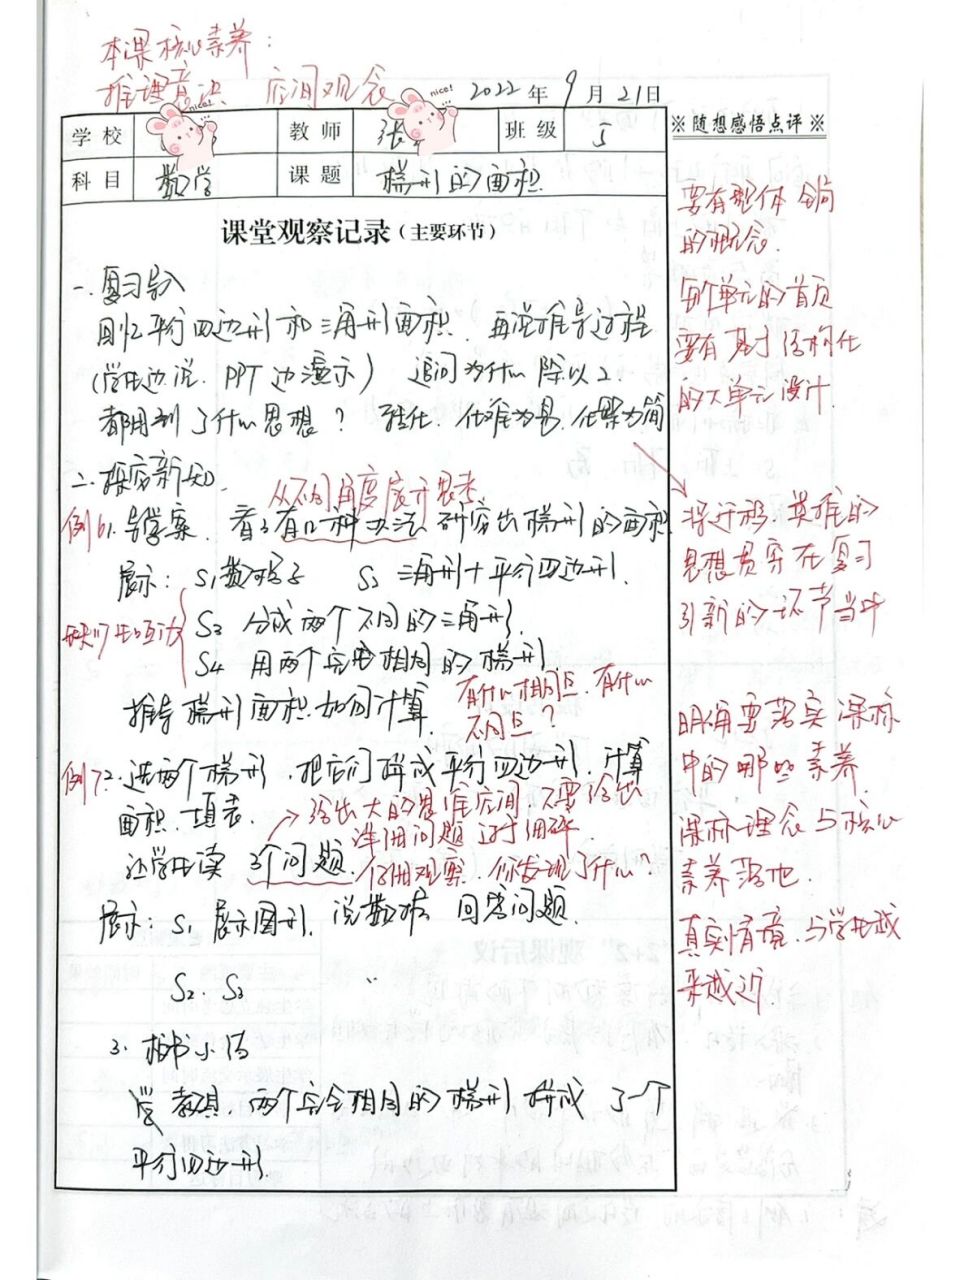 本课核心素养：
推理意识 空间观念
nice!
nice!
2022年9月21日
学校 教师 张 班级 5
科目 数学 课题 梯形的面积
※随想感悟点评※
课堂观察记录（主要环节）
一.复习导入
回忆平行四边形和三角形面积.再说推导过程
(学生边说.PPT边演示) 追问为什么除以2.
都用到了什么思想？ 转化.化难为易.化繁为简
二.探究新知.
从不同角度展开思考
例6 1.导学案. 看了有几种办法研究出梯形的面积
展示：S1数格子 S2三角形+平行四边形.
S3 分成两个不同的三角形.
缺少生生互动
S4 用两个完全相同的梯形
推导梯形面积如何计算
有什么相同点.有什么
不同点？
例7 2.选两个梯形.把它们拼成平行四边形.计算
面积.填表.
给出大的思维空间 不要给出
连串问题 过于细碎.
让学生读3个问题
仔细观察 你发现了什么
展示：S1展示图形.说数据 回答问题.
S2. S3 〃
3. 板书小结
教具.两个完全相同的梯形拼成了一个
平行四边形.
要有整体 全局
的概念.
每个单元的首页
要有基于结构化
的大单元设计.
将迁移 类推的
思想贯穿在复习
引新的一环节当中
明确要落实课标
中的哪些素养.
课标理念与核心
素养落地.
真实情境.与学生越
来越近.
"2+2" 观课后议